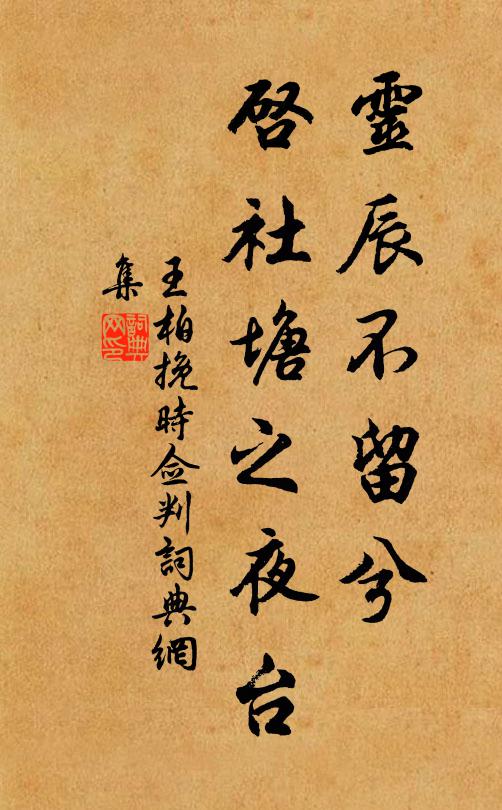 靈辰不留兮
啓社塘之夜台
王柏挽時僉判詞典網
集
詞典
网印